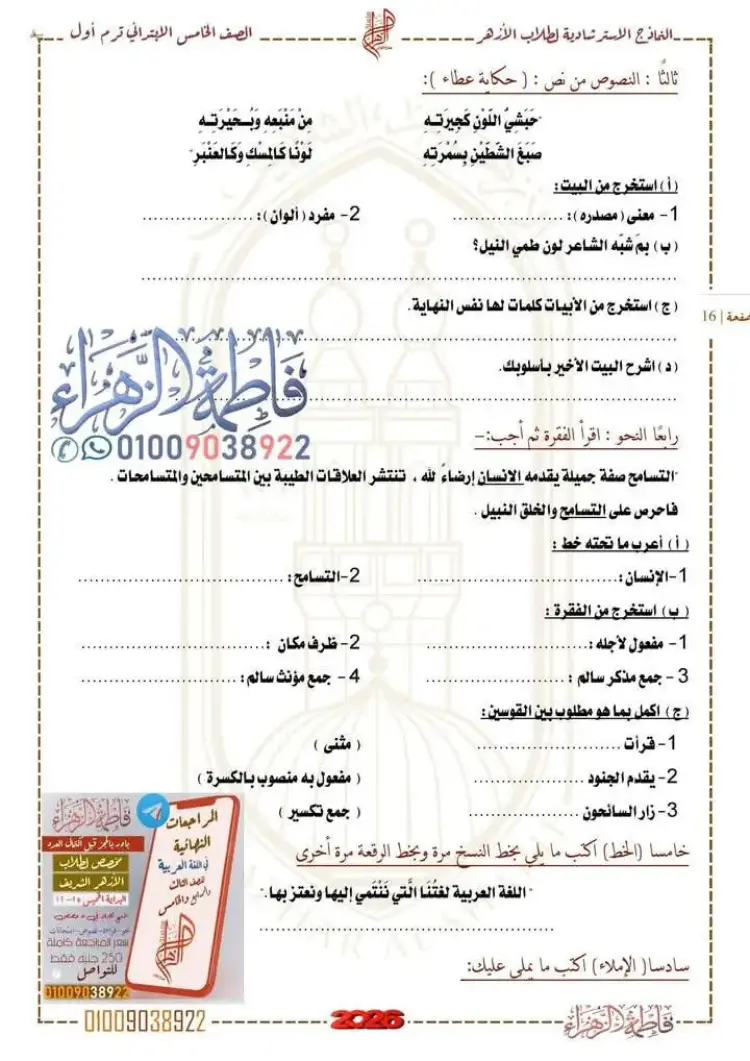 النماذج الاسترشادية لطلاب الأزهر
الصف الخامس الإبتدائي ترم أول
ثالثًا : النصوص من نص : ( حكاية عطاء ) :
"حَبَشِيُّ اللَّوْنِ كَجِيرَتِـهِ مِنْ مَنْبَعِهِ وَبُـحَيْرَتِـهِ
صَبَغَ الشَّطَّيْنِ بِسُمْرَتِهِ لَوْنًا كَالمِسْكِ وَكَالعَنْبَرِ"
(أ) استخرج من البيت :
1- معنى (مصدره) : ....................
2- مفرد (ألوان) : ....................
(ب) بمَ شبّه الشاعر لون طمي النيل؟
....................
(ج) استخرج من الأبيات كلمات لها نفس النهاية.
....................
(د) اشرح البيت الأخير بأسلوبك.
....................
صفحة | 16
فاطمة الزهراء
01009038922
رابعًا النحو : اقرأ الفقرة ثم أجب:-
"التسامح صفة جميلة يقدمه الانسان إرضاءً لله ، تنتشر العلاقات الطيبة بين المتسامحين والمتسامحات .
فاحرص على التسامح والخلق النبيل .
(أ) أعرب ما تحته خط :
1-الإنسان: ....................
2-التسامح: ....................
(ب) استخرج من الفقرة :
1- مفعول لأجله : ....................
2- ظرف مكان : ....................
3- جمع مذكر سالم : ....................
4- جمع مؤنث سالم : ....................
(ج) اكمل بما هو مطلوب بين القوسين:
1- قرأت .................... ( مثنى )
2- يقدم الجنود .................... ( مفعول به منصوب بالكسرة )
3- زار السائحون .................... ( جمع تكسير )
خامسا (الخط) اكتب ما يلي بخط النسخ مرة وبخط الرقعة مرة أخرى
" اللغة العربية لغتُنَا الَّتي نَنْتَمي إليها ونعتز بها."
....................
سادسا( الإملاء) اكتب ما يملى عليك:
فاطمة الزهراء
بادر بالحجز قبل اكتمال العدد
مخصص لطلاب
الأزهر الشريف
شعر المراجعة كاملة
250 جنيه فقط
للتواصل
01009038922
المراجعات
النهائية
في اللغة العربية
للصف الثالث
والرابع والخامس
01009038922
2026
فاطمة الزهراء